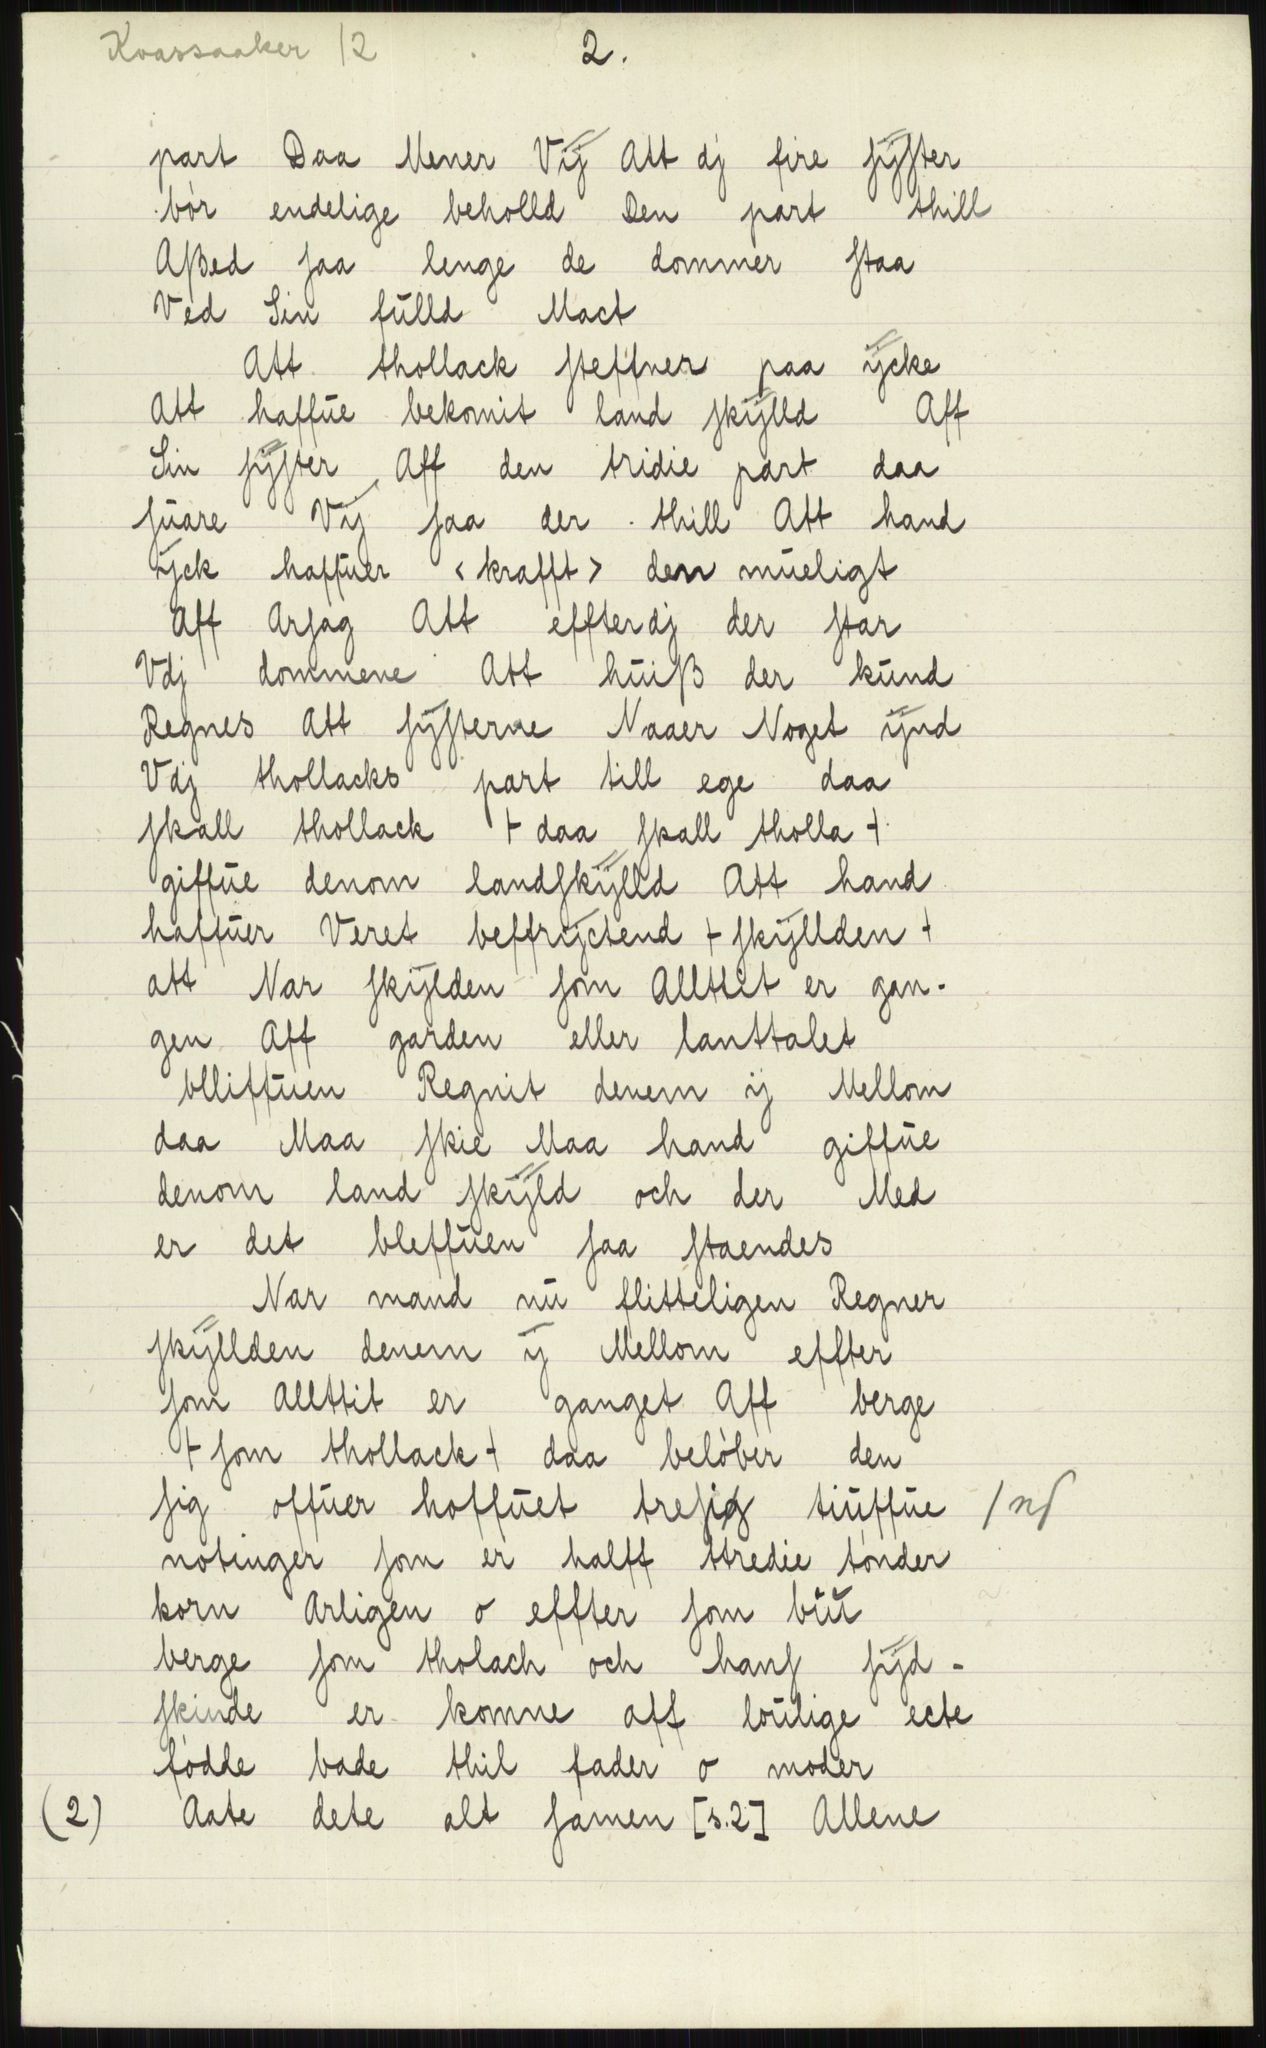 Kvassaaker /2
2.
part Daa Mener Vÿ Att dj fire ſÿſter
bór endelige beholld Den part thill
Aßed ſaa lenge de dommer ſtaa
Ved Sin fulld Mact
Att thollack ſteffner paa ÿcke
Att haffue bekomit land ſkÿlld Aff
Sin ſÿſter Aff den tridie part daa
ſuare Vij ſaa der thill Att hand
ÿck haffuer <krafft> den mueligt
Aff Arſag Att effterdj der ſtar
Vdj dommene Att huiß der kund
Regnes Att ſÿſterne Naaer Noget ÿnd
Vdj thollacks part till ege daa
ſkall thollack + daa ſkall tholla +
giffue denom landſkÿlld Att hand
haffuer Veret beffrÿctend + ſkÿllden +
att Nar ſkÿlden ſom Allttit er gan-
gen Aff garden eller lanttalet
blliffuen Regnit denem ij Mellom
daa Maa ſkie Maa hand giffue
denom land ſkÿld och der Med
er det bleffuen ſaa ſtaendes
Nar mand nu flitteligen Regner
ſkÿllden denem ÿ Mellom effter
ſom Allttit er ganget Aff berge
+ ſom thollack + daa belóber den
ſig offuer hoffuet treſig tiuffue /nſ
notinger ſom er halff ttredie tónder
korn Arligen o effter ſom buu
berge ſom tholach och hanſ ſÿd-
ſkinde er komne aff loulige ecte
fódde bade thil fader o moder
(2) Aate dete alt ſamen [s.2] Allene